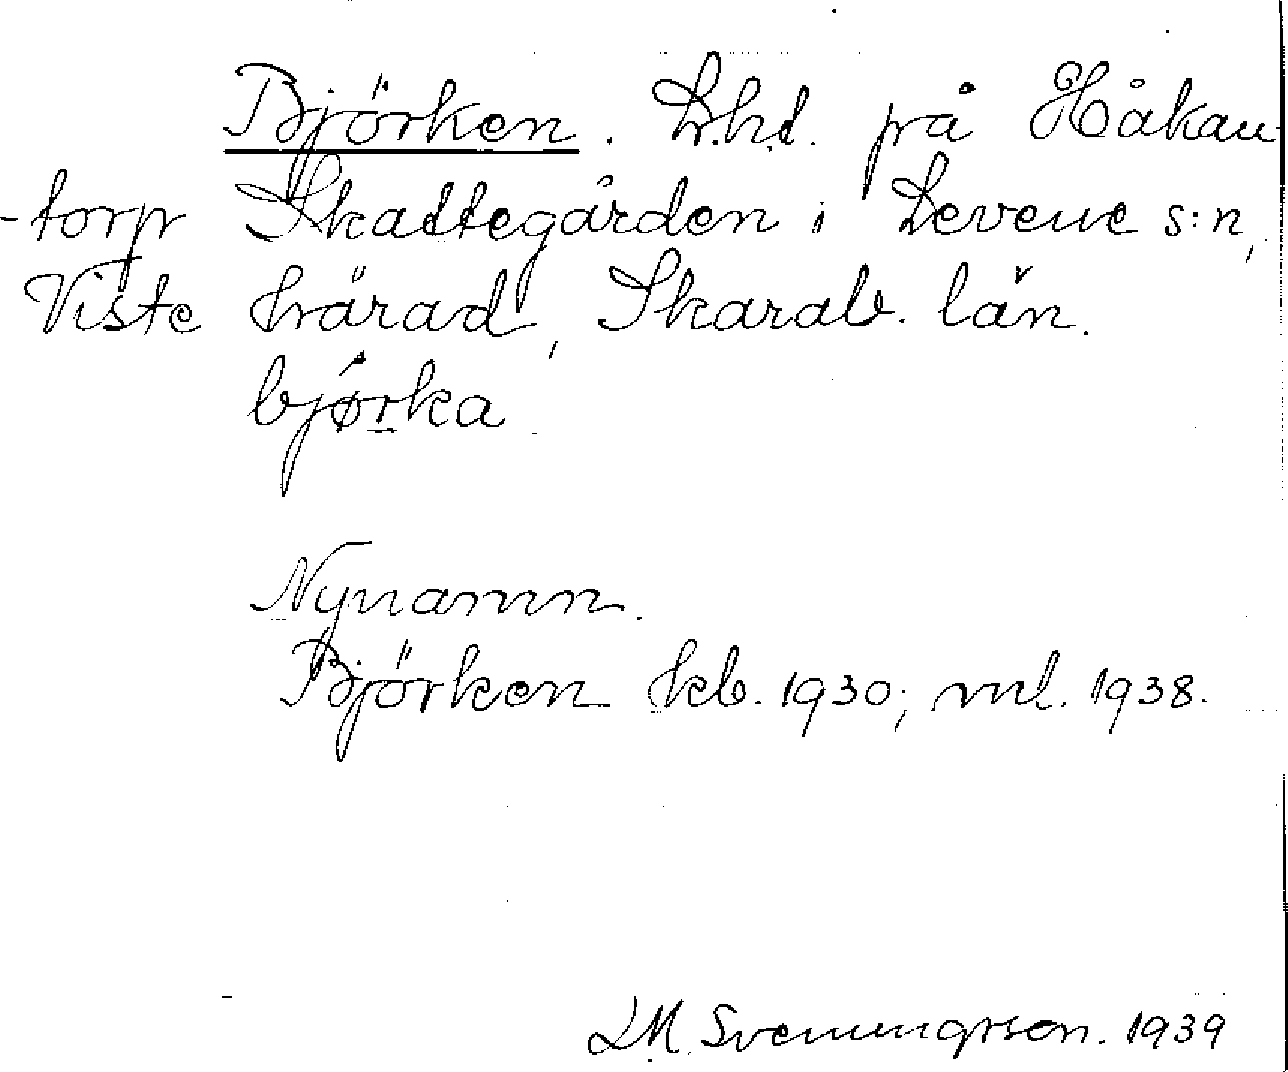 Björken. L.h.t. på Håkan-
-torp Skattegården i Levene s:n,
Viste härad, Skarab. län.
bjørka

Nynamn.
Björken kb. 1930; ml. 1938.

LM. Svenungsson. 1939